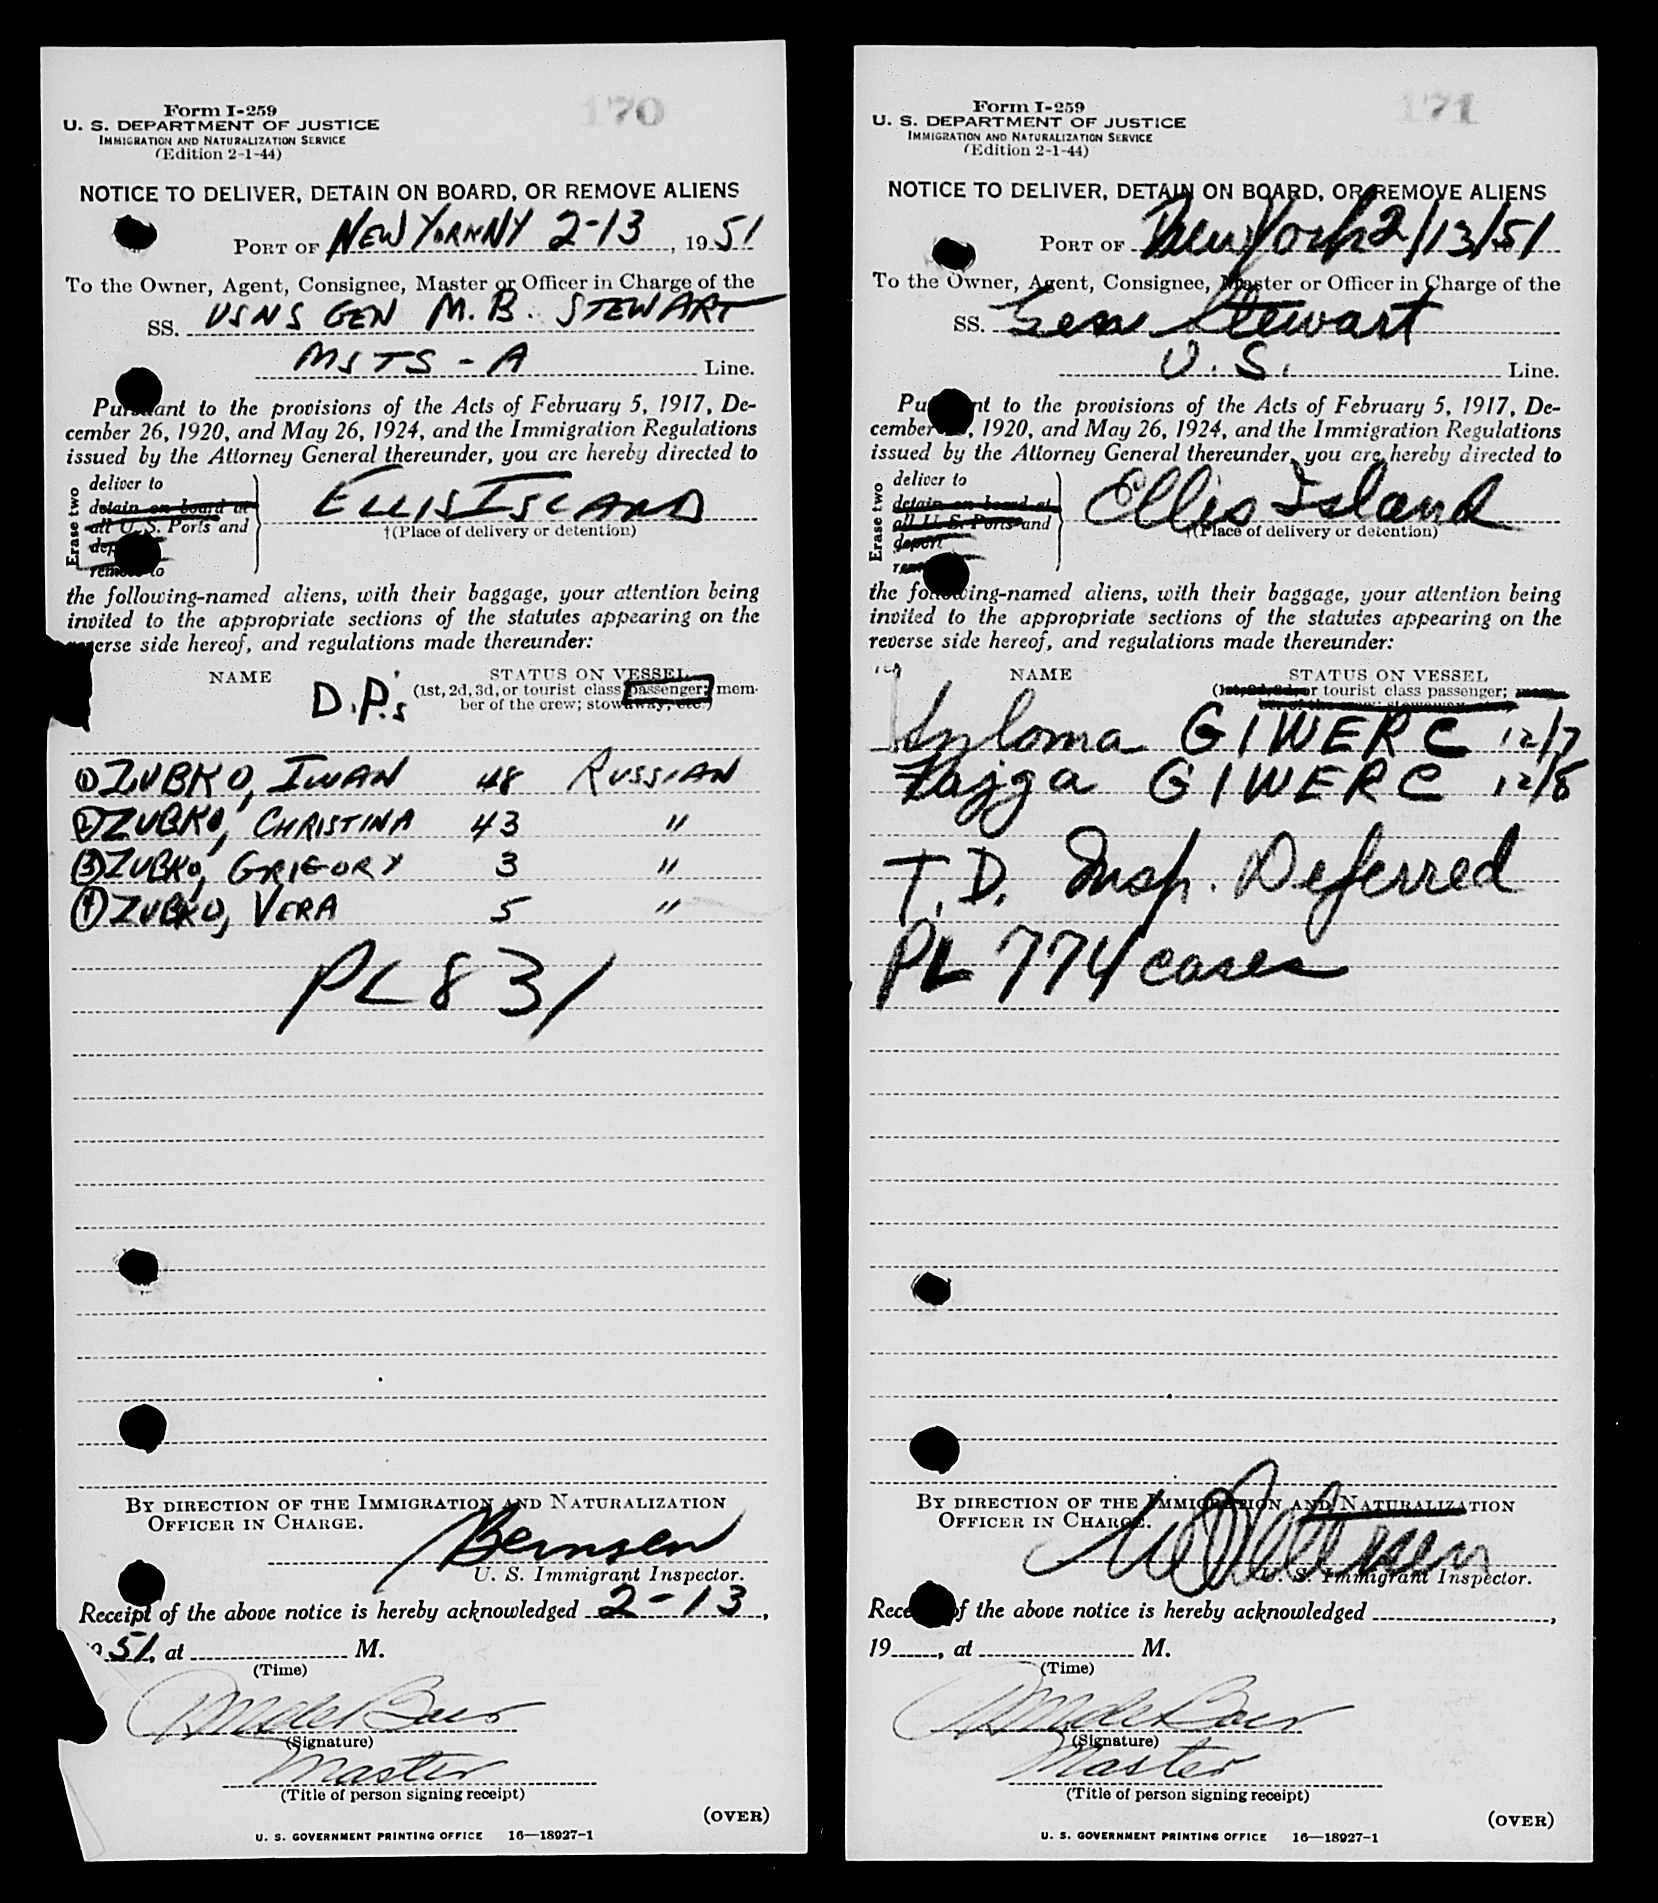 Form I-259
170
U. S. DEPARTMENT OF JUSTICE
IMMIGRATION AND NATURALIZATION SERVICE
(Edition 2-1-44)
NOTICE TO DELIVER, DETAIN ON BOARD, OR REMOVE ALIENS
PORT OF NEW YORK NY 2-13, 1951
To the Owner, Agent, Consignee, Master or Officer in Charge of the
SS. USNS GEN M. B. STEWART
MSTS - A Line.
Pursuant to the provisions of the Acts of February 5, 1917, De-
cember 26, 1920, and May 26, 1924, and the Immigration Regulations
issued by the Attorney General thereunder, you are hereby directed to
Erase two
deliver to
detain on board at
all U. S. Ports and
remove to
ELLIS ISLAND
†(Place of delivery or detention)
the following-named aliens, with their baggage, your attention being
invited to the appropriate sections of the statutes appearing on the
reverse side hereof, and regulations made thereunder:
NAME
STATUS ON VESSEL
D.P.'s (1st, 2d, 3d, or tourist class passenger; mem-
ber of the crew; stowaway, etc.)
① ZUBKO, IWAN 48 RUSSIAN
② ZUBKO, CHRISTINA 43 "
③ ZUBKO, GRIEORY 3 "
④ ZUBKO, VERA 5 "
PL 831
BY DIRECTION OF THE IMMIGRATION AND NATURALIZATION
OFFICER IN CHARGE.
Bernsen
U. S. Immigrant Inspector.
Receipt of the above notice is hereby acknowledged 2-13,
1951, at M.
(Time)
(Signature)
Master
(Title of person signing receipt)
(OVER)
U. S. GOVERNMENT PRINTING OFFICE 16—18927-1
Form I-259
171
U. S. DEPARTMENT OF JUSTICE
IMMIGRATION AND NATURALIZATION SERVICE
(Edition 2-1-44)
NOTICE TO DELIVER, DETAIN ON BOARD, OR REMOVE ALIENS
PORT OF New York 2/13/51
To the Owner, Agent, Consignee, Master or Officer in Charge of the
SS. Gen Stewart
U. S. Line.
Pursuant to the provisions of the Acts of February 5, 1917, De-
cember 26, 1920, and May 26, 1924, and the Immigration Regulations
issued by the Attorney General thereunder, you are hereby directed to
Erase two
deliver to
detain on board at
all U. S. Ports and
deport
Ellis Island
†(Place of delivery or detention)
the following-named aliens, with their baggage, your attention being
invited to the appropriate sections of the statutes appearing on the
reverse side hereof, and regulations made thereunder:
NAME
STATUS ON VESSEL
(1st, 2d, 3d, or tourist class passenger; mem-
ber of the crew; stowaway
GIWERC 12/7
Fajga GIWERC 12/8
T.D. Insp. Deferred
PL 774 cases
BY DIRECTION OF THE IMMIGRATION AND NATURALIZATION
OFFICER IN CHARGE.
U. S. Immigrant Inspector.
Receipt of the above notice is hereby acknowledged ,
19 , at M.
(Time)
(Signature)
Master
(Title of person signing receipt)
(OVER)
U. S. GOVERNMENT PRINTING OFFICE 16—18927-1